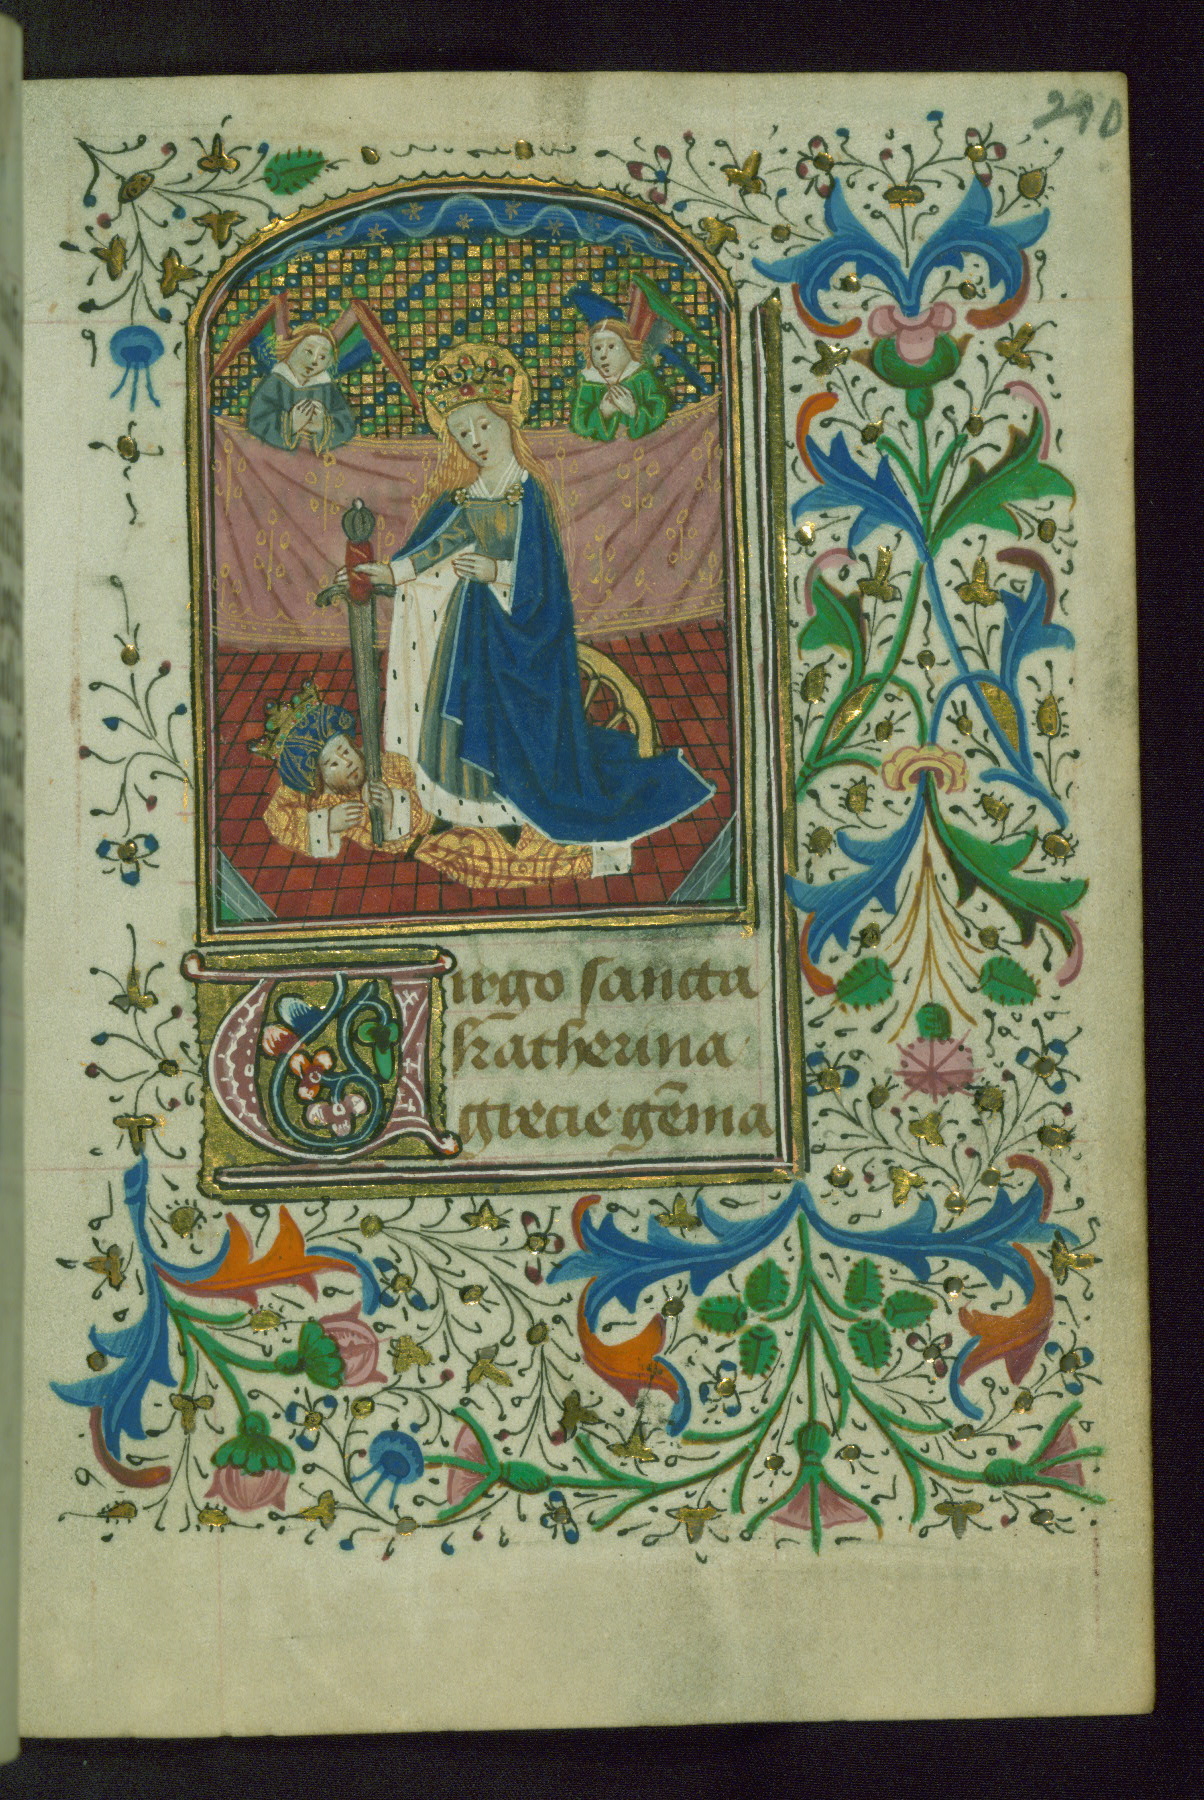 290
Uirgo sancta
katherina
grecie gēma